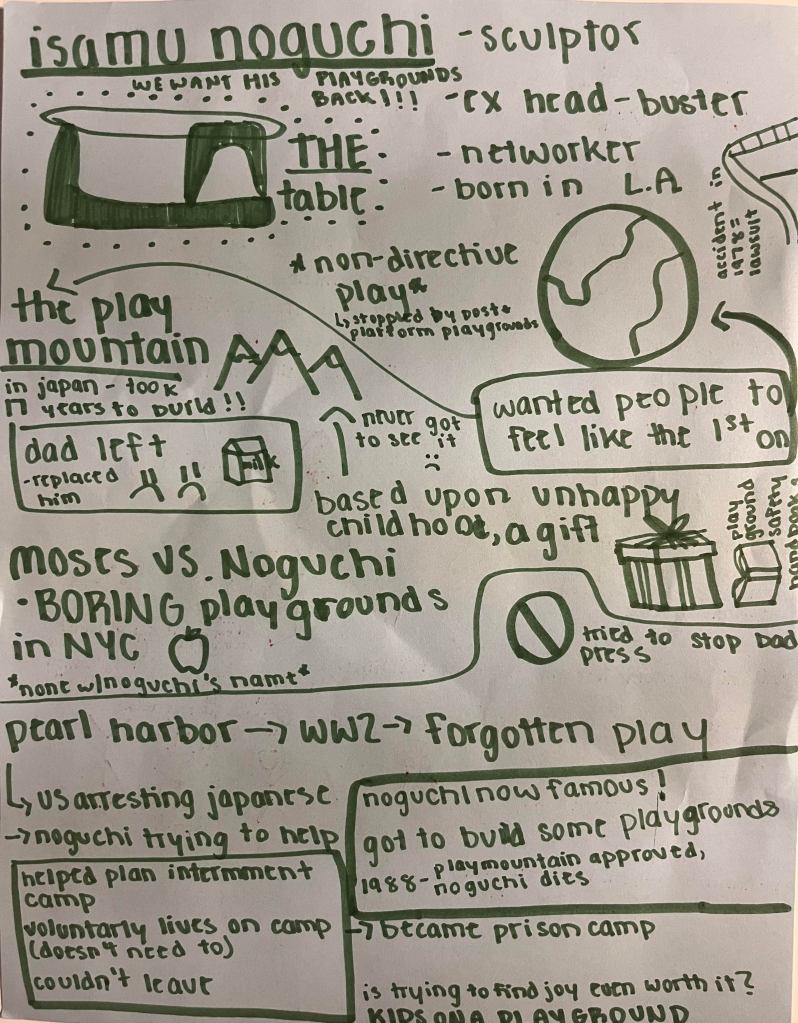 isamu noguchi - sculptor
WE WANT HIS PLAYGROUNDS
BACK!!!
- ex head-buster
THE
table
- networker
- born in L.A
accident in
1978 =
lawsuit
* non-directive
play*
↳ stoppled by post +
platform playgrounds
the play
mountain
in japan - took
17 years to build!!
never got
to see it
wanted people to
feel like the 1st on
dad left
- replaced
him
milk
based upon unhappy
childhood, a gift
play
ground
safety
handbook
moses vs. Noguchi
• BORING playgrounds
in NYC
*none w/noguchi's name*
tried to stop bad
press
pearl harbor → WW2 → forgotten play
↳ US arresting japanese
→ noguchi trying to help
noguchi now famous!
got to build some playgrounds
- playmountain approved,
1988 - noguchi dies
helped plan internment
camp
voluntarly lives on camp
(doesn't need to)
couldn't leave
→ became prison camp
is trying to find joy even worth it?
KIDS ON A PLAYGROUND